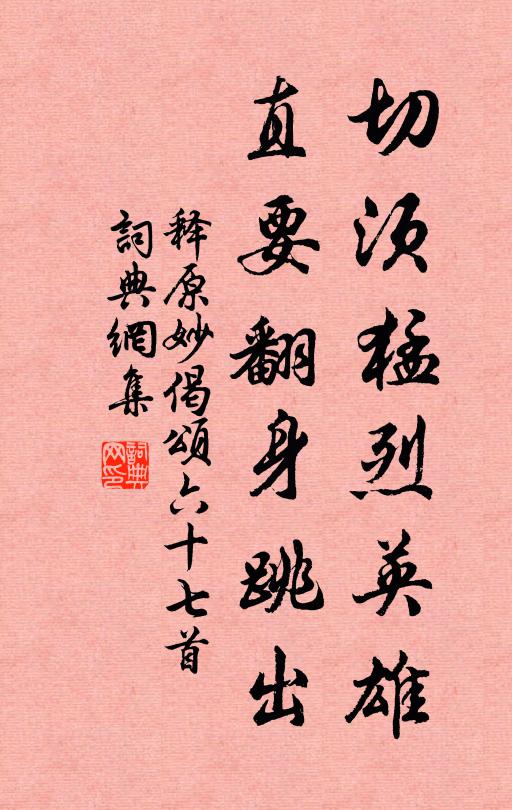 切须猛烈英雄
直要翻身跳出
释原妙偈頌六十七首
詞典網集
詞典网印